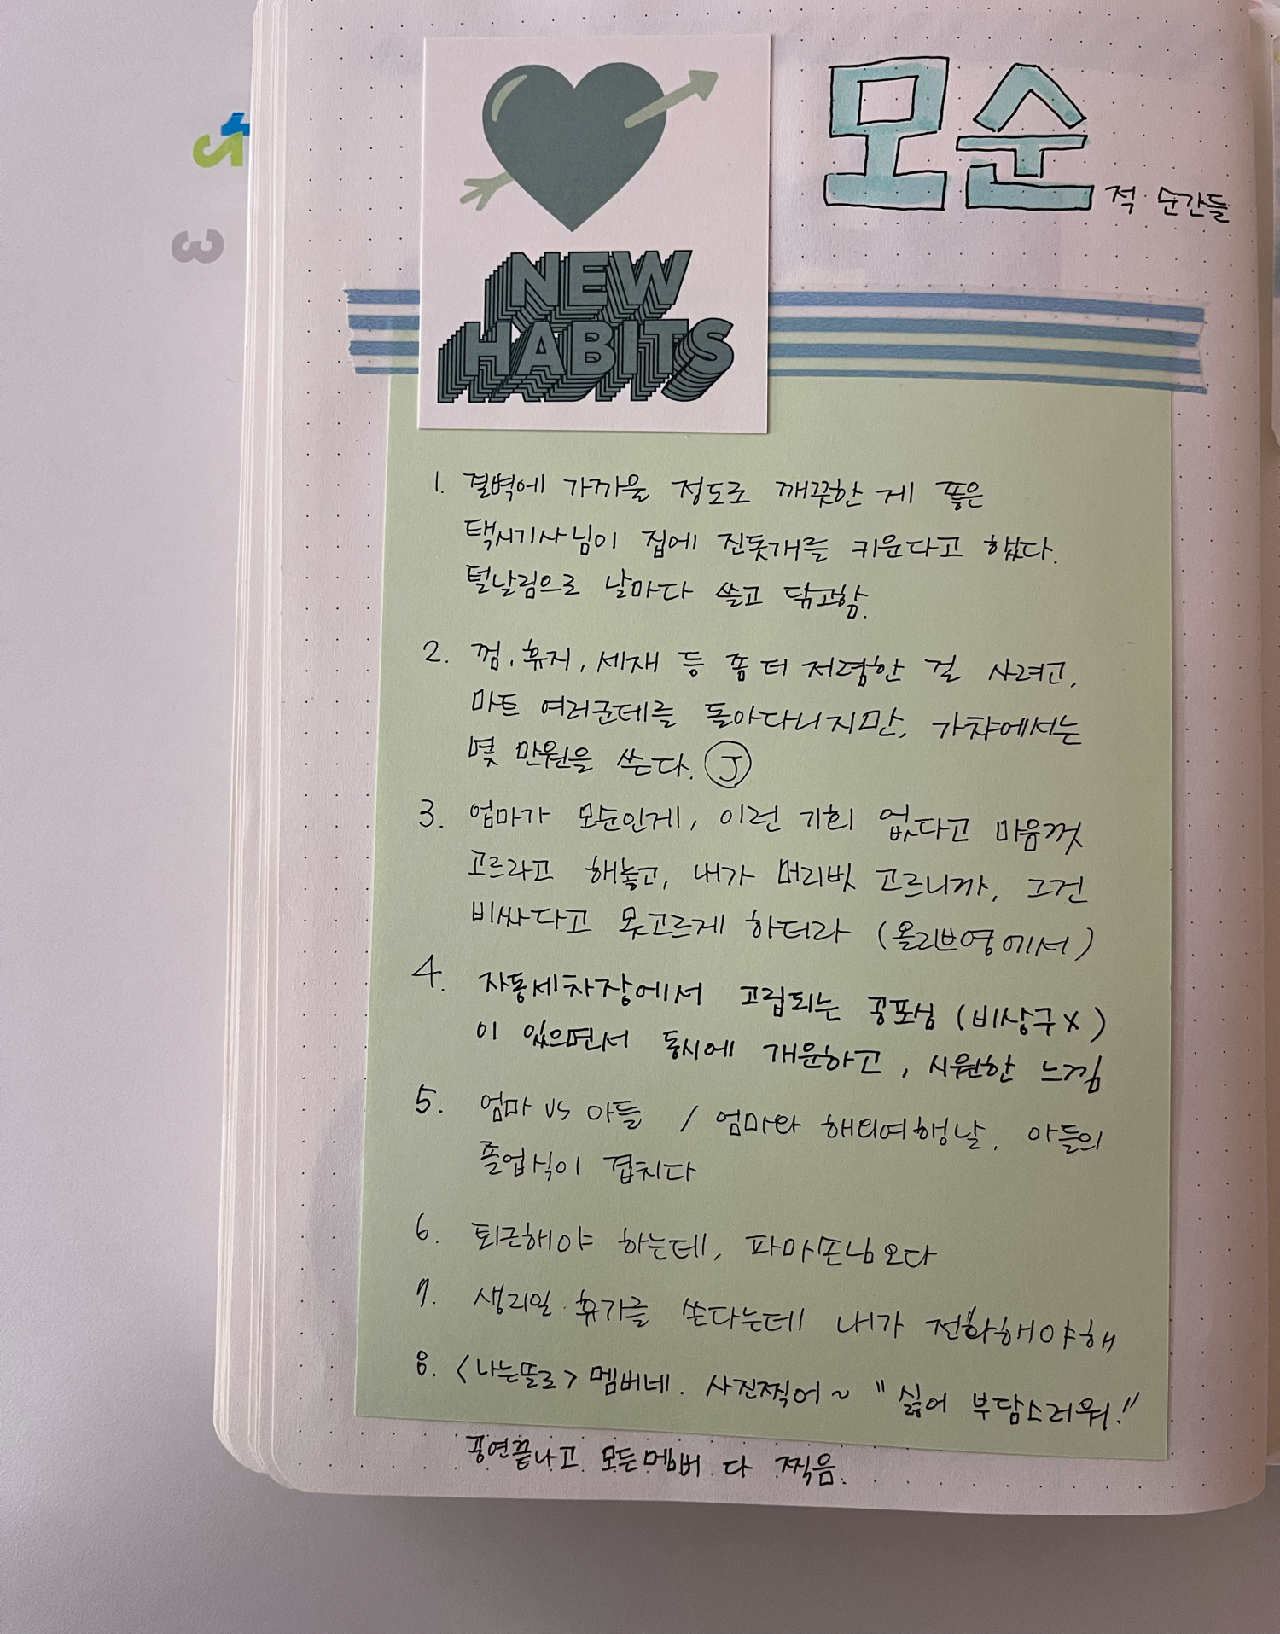 모순적 순간들
NEW
HABITS
1. 결벽에 가까울 정도로 깨끗한 게 좋은
택시기사님이 집에 진돗개를 키운다고 했다.
털날림으로 날마다 쓸고 닦고함.
2. 껌, 휴지, 세재 등 좀 더 저렴한 걸 사려고,
마트 여러군데를 돌아다니지만, 가챠에서는
몇 만원을 쓴다. J
3. 엄마가 모순인게, 이런 기회 없다고 마음껏
고르라고 해놓고, 내가 머리빗 고르니까, 그건
비싸다고 못고르게 하더라 (올리브영에서)
4. 자동세차장에서 고립되는 공포심 (비상구X)
이 있으면서 동시에 개운하고, 시원한 느낌
5. 엄마 vs 아들 / 엄마와 해외여행날, 아들의
졸업식이 겹치다
6. 퇴근해야 하는데, 파마손님오다
7. 생리일 휴가를 쓴다는데 내가 전화해야해
8. <나는딸로> 멤버네. 사진찍어~ "싫어 부담스러워!"
공연끝나고 모든멤버 다 찍음.